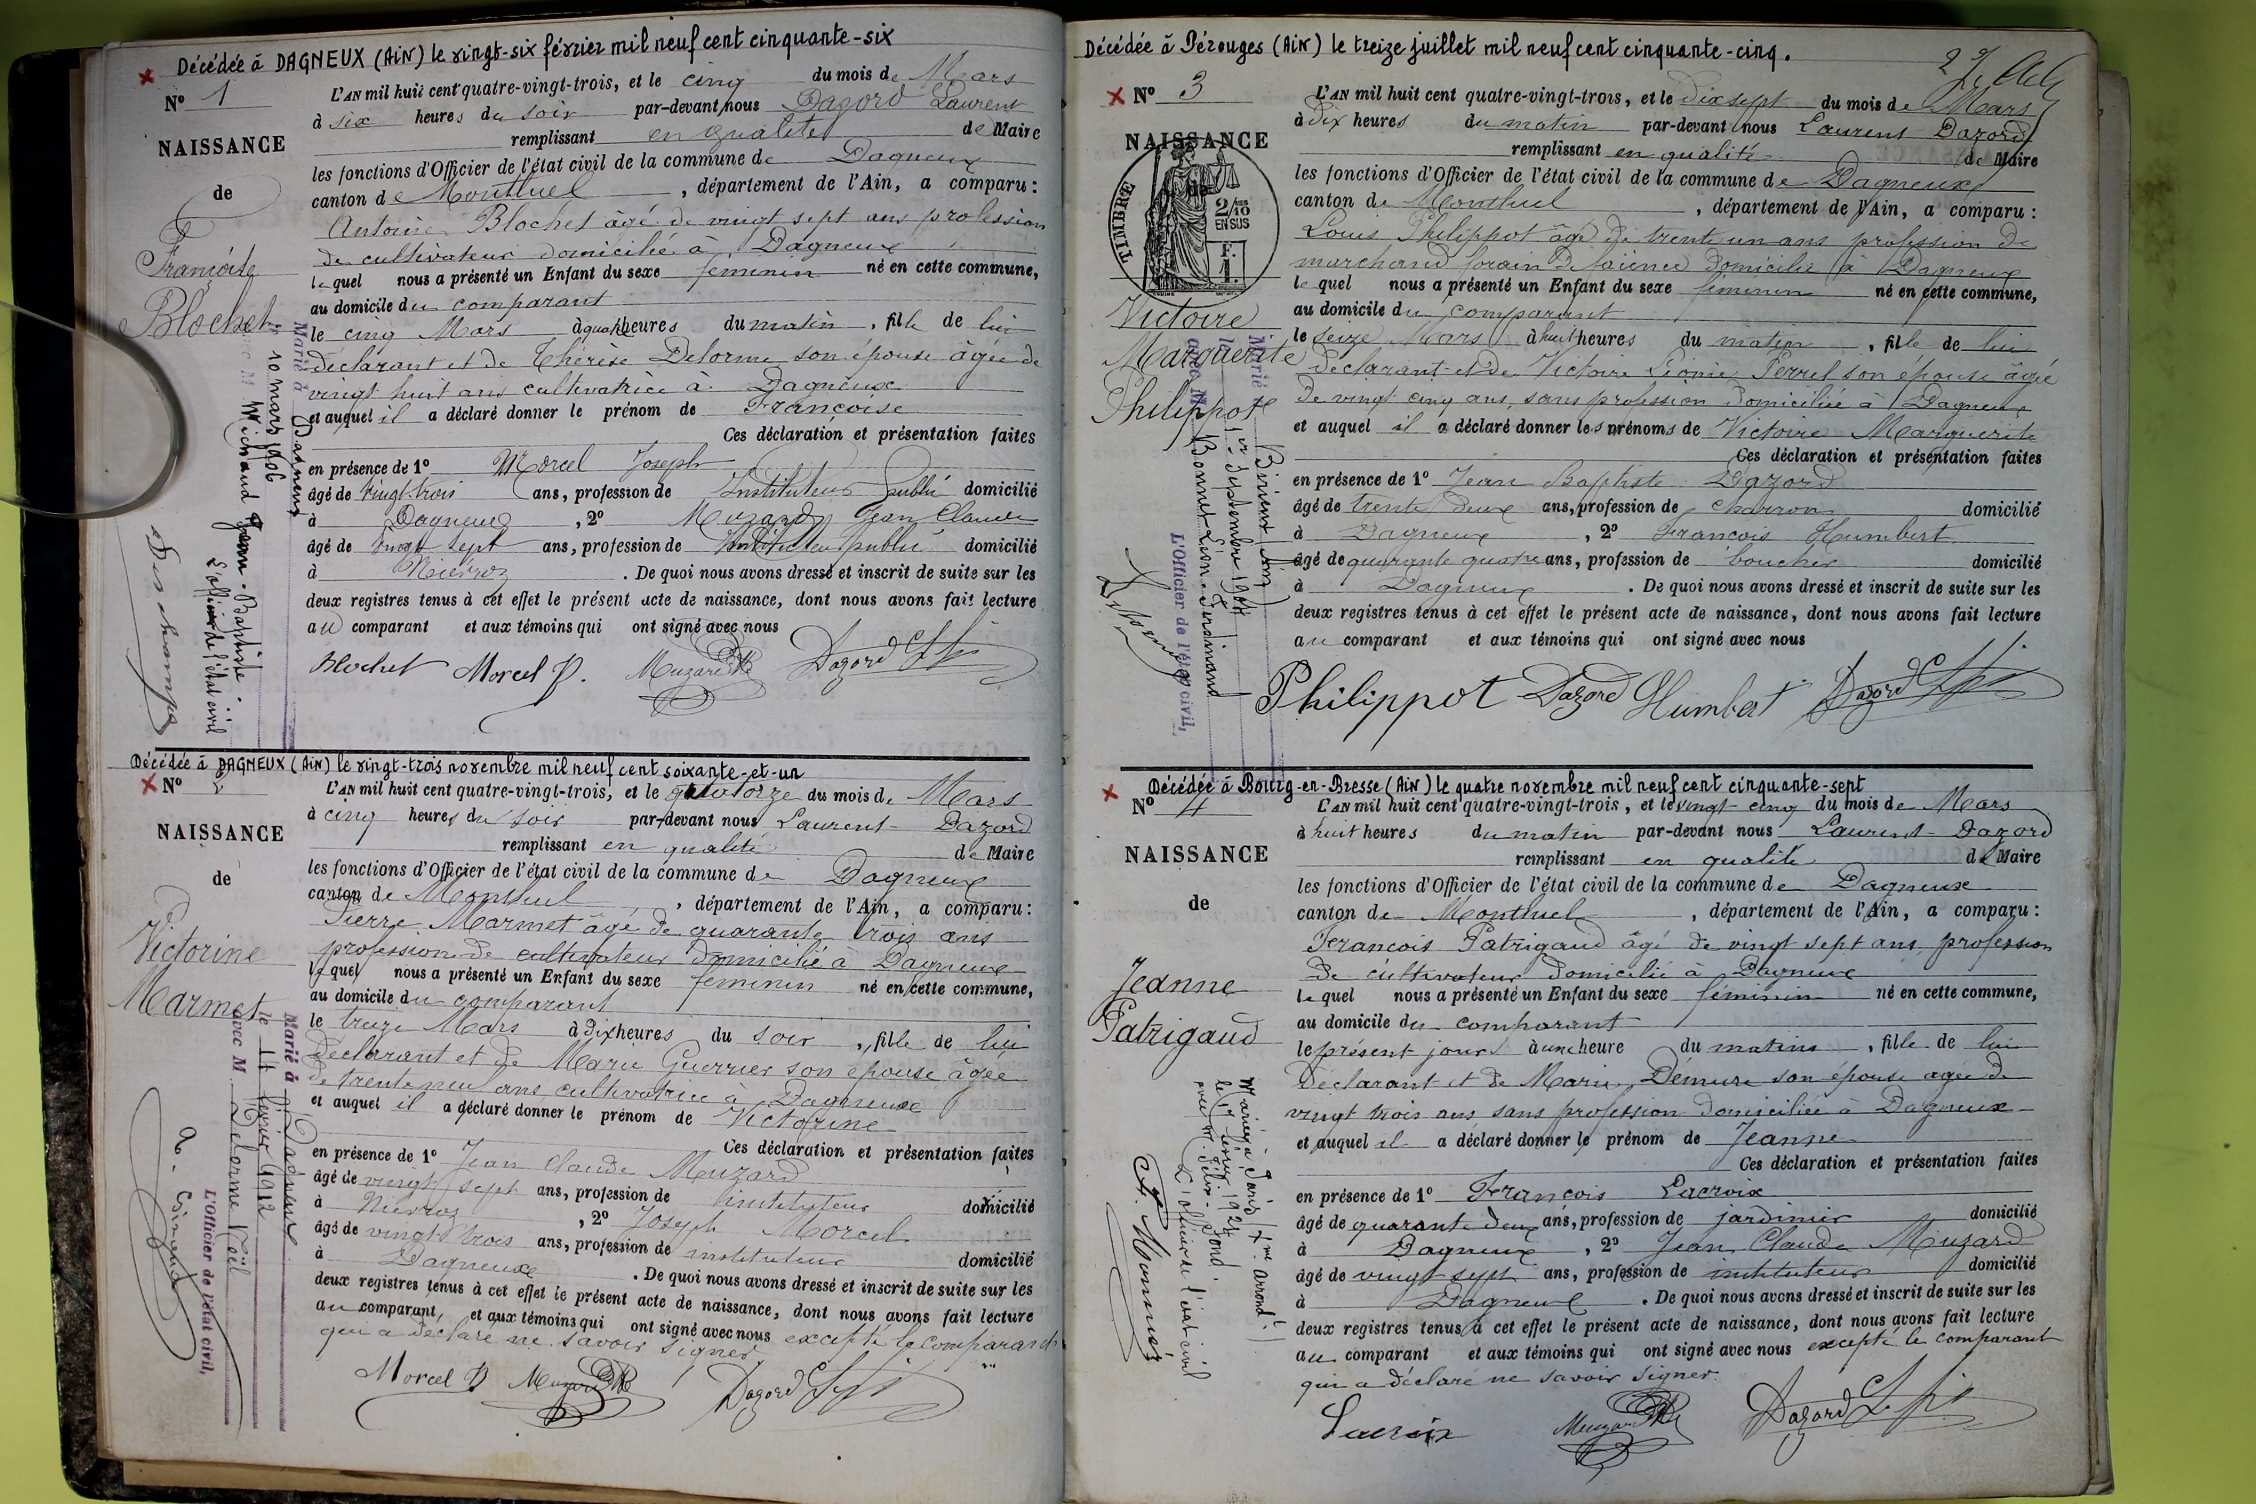 Décédée à DAGNEUX (AiN) le vingt-six février mil neuf cent cinquante-six
N° 1
NAISSANCE
de
Françoise
Blochet
L'AN mil huit cent quatre-vingt-trois, et le cinq du mois de Mars
à six heures du soir par-devant nous Dazord Laurent
remplissant en qualité de Maire
les fonctions d'Officier de l'état civil de la commune de Dagneux
canton de Montluel, département de l'Ain, a comparu:
Antoine Blochet âgé de vingt sept ans profession
de cultivateur domicilié à Dagneux
lequel nous a présenté un Enfant du sexe féminin né en cette commune,
au domicile du comparant
le cinq Mars à quatre heures du matin, fille de lui
déclarant et de Thérèse Delorme son épouse âgée de
vingt huit ans cultivatrice à Dagneux
et auquel il a déclaré donner le prénom de Françoise
Ces déclaration et présentation faites
en présence de 1° Morcel Joseph
âgé de vingt-trois ans, profession de Instituteur public domicilié
à Dagneux, 2° Muzard Jean Claude
âgé de vingt sept ans, profession de Instituteur public domicilié
à Niévroz. De quoi nous avons dressé et inscrit de suite sur les
deux registres tenus à cet effet le présent acte de naissance, dont nous avons fait lecture
au comparant et aux témoins qui ont signé avec nous
Blochet Morcel J. Muzard Dazord
Marié à Dagneux
le 10 mars 1906
avec M Michaud Jean-Baptiste.
L'officier de l'état civil
Deschamps
Décédée à DAGNEUX (AiN) le vingt-trois novembre mil neuf cent soixante-et-un
N° 2
NAISSANCE
de
Victorine
Marmet
L'AN mil huit cent quatre-vingt-trois, et le quatorze du mois de Mars
à cinq heures du soir par-devant nous Laurent Dazord
remplissant en qualité de Maire
les fonctions d'Officier de l'état civil de la commune de Dagneux
canton de Montluel, département de l'Ain, a comparu:
Pierre Marmet âgé de quarante trois ans
profession de cultivateur domicilié à Dagneux
lequel nous a présenté un Enfant du sexe féminin né en cette commune,
au domicile du comparant
le treize Mars à dix heures du soir, fille de lui
déclarant et de Marie Guerrier son épouse âgée
de trente neuf ans cultivatrice à Dagneux
et auquel il a déclaré donner le prénom de Victorine
Ces déclaration et présentation faites
en présence de 1° Jean Claude Muzard
âgé de vingt sept ans, profession de instituteur domicilié
à Niévroz, 2° Joseph Morcel
âgé de vingt trois ans, profession de instituteur domicilié
à Dagneux. De quoi nous avons dressé et inscrit de suite sur les
deux registres tenus à cet effet le présent acte de naissance, dont nous avons fait lecture
au comparant et aux témoins qui ont signé avec nous excepté le comparant
qui a déclaré ne savoir signer
Morcel J Muzard Dazord
Marié à Dagneux
le 14 février 1912
avec M Delorme Noël
L'Officier de l'état civil,
Décédée à Pérouges (AiN) le treize juillet mil neuf cent cinquante-cinq.
N° 3
NAISSANCE
de
TIMBRE
2/10
EN SUS
F.
1.
Victoire
Marguerite
Philippot
L'AN mil huit cent quatre-vingt-trois, et le dix sept du mois de Mars
à dix heures du matin par-devant nous Laurent Dazord
remplissant en qualité de Maire
les fonctions d'Officier de l'état civil de la commune de Dagneux
canton de Montluel, département de l'Ain, a comparu:
Louis Philippot âgé de trente un ans profession de
marchand forain de faïence domicilié à Dagneux
lequel nous a présenté un Enfant du sexe féminin né en cette commune,
au domicile du comparant
le seize Mars à huit heures du matin, fille de lui
déclarant et de Victoire Léonie Perret son épouse âgée
de vingt cinq ans, sans profession domiciliée à Dagneux
et auquel il a déclaré donner les prénoms de Victoire Marguerite
Ces déclaration et présentation faites
en présence de 1° Jean Baptiste Dazord
âgé de trente deux ans, profession de charron domicilié
à Dagneux, 2° François Humbert
âgé de quarante quatre ans, profession de boucher domicilié
à Dagneux. De quoi nous avons dressé et inscrit de suite sur les
deux registres tenus à cet effet le présent acte de naissance, dont nous avons fait lecture
au comparant et aux témoins qui ont signé avec nous
Philippot Dazord Humbert Dazord
Marié à
le 1er septembre 1904
avec M Bonnet Léon-Ferdinand
L'Officier de l'état civil,
Décédée à Bourg-en-Bresse (AiN) le quatre novembre mil neuf cent cinquante-sept
N° 4
NAISSANCE
de
Jeanne
Patrigaud
L'AN mil huit cent quatre-vingt-trois, et le vingt-cinq du mois de Mars
à huit heures du matin par-devant nous Laurent Dazord
remplissant en qualité de Maire
les fonctions d'Officier de l'état civil de la commune de Dagneux
canton de Montluel, département de l'Ain, a comparu:
François Patrigaud âgé de vingt sept ans, profession
de cultivateur domicilié à Dagneux
lequel nous a présenté un Enfant du sexe féminin né en cette commune,
au domicile du comparant
le présent jour à une heure du matin, fille de lui
déclarant et de Marie Démure son épouse âgée de
vingt trois ans sans profession domiciliée à Dagneux
et auquel il a déclaré donner le prénom de Jeanne
Ces déclaration et présentation faites
en présence de 1° François Lacroix
âgé de quarante deux ans, profession de jardinier domicilié
à Dagneux, 2° Jean Claude Muzard
âgé de vingt sept ans, profession de instituteur domicilié
à Dagneux. De quoi nous avons dressé et inscrit de suite sur les
deux registres tenus à cet effet le présent acte de naissance, dont nous avons fait lecture
au comparant et aux témoins qui ont signé avec nous excepté le comparant
qui a déclaré ne savoir signer.
Lacroix Muzard Dazord
Mariée à Paris
février 1924
avec M Félix
L'officier de l'état civil